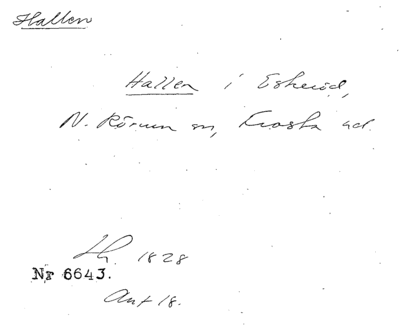 Hallen
Hallen i Eskeröd,
N. Rörum sn, Frosta hd.
Lh. 1828
Nr 6643.
Ant 18.